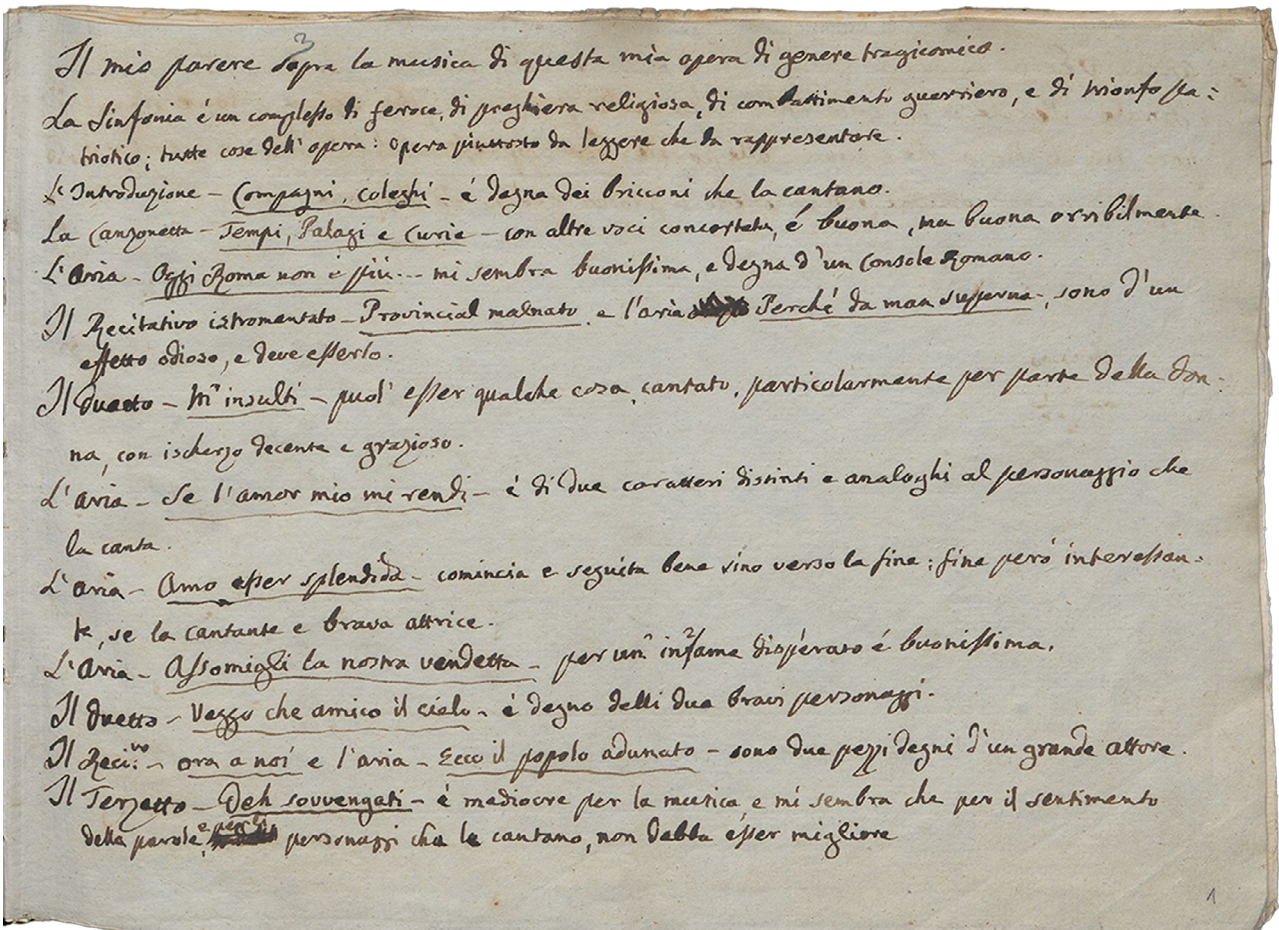 Il mio parere sopra la musica di questa mia opera di genere tragicomico.
La Sinfonia é un complesso di feroce, di preghiera religiosa, di combattimento guerriero, e di trionfo pa:
triotico; tutte cose dell' opera: opera piuttosto da leggere che da rappresentare.
L'Introduzione - Compagni, coleghi - é degna dei bricconi che la cantano.
La Canzonetta - Tempi, Palagi e Curie - con altre voci concertata, é buona, ma buona orribilmente.
L'Aria - Oggi Roma non è più... mi sembra buonissima, e degna d'un Console Romano.
Il Recitativo istromentato - Provincial malnato e l'aria Perché da man superna -, sono d'un
effetto odioso, e deve esserlo.
Il duetto - M'insulti - puol' esser qualche cosa, cantato, particolarmente per parte della don:
na, con ischerzo decente e grazioso.
L'aria - Se l'amor mio mi rendi - é di due caratteri distinti e analoghi al personaggio che
la canta.
L'aria - Amo esser splendida - comincia e seguita bene sino verso la fine: fine peró interessan:
te, se la cantante e brava attrice.
L'Aria - Assomigli la nostra vendetta - per un' infame disperato é buonissima.
Il duetto - Veggo che amico il cielo - é degno delli due bravi personaggi.
Il Reci:vo - ora a noi e l'aria - Ecco il popolo adunato - sono due pezzi degni d'un grande attore.
Il Terzetto - Deh sovvengati - é mediocre per la musica, e mi sembra che per il sentimento
delle parole, e per li personaggi che le cantano, non debba esser migliore
1